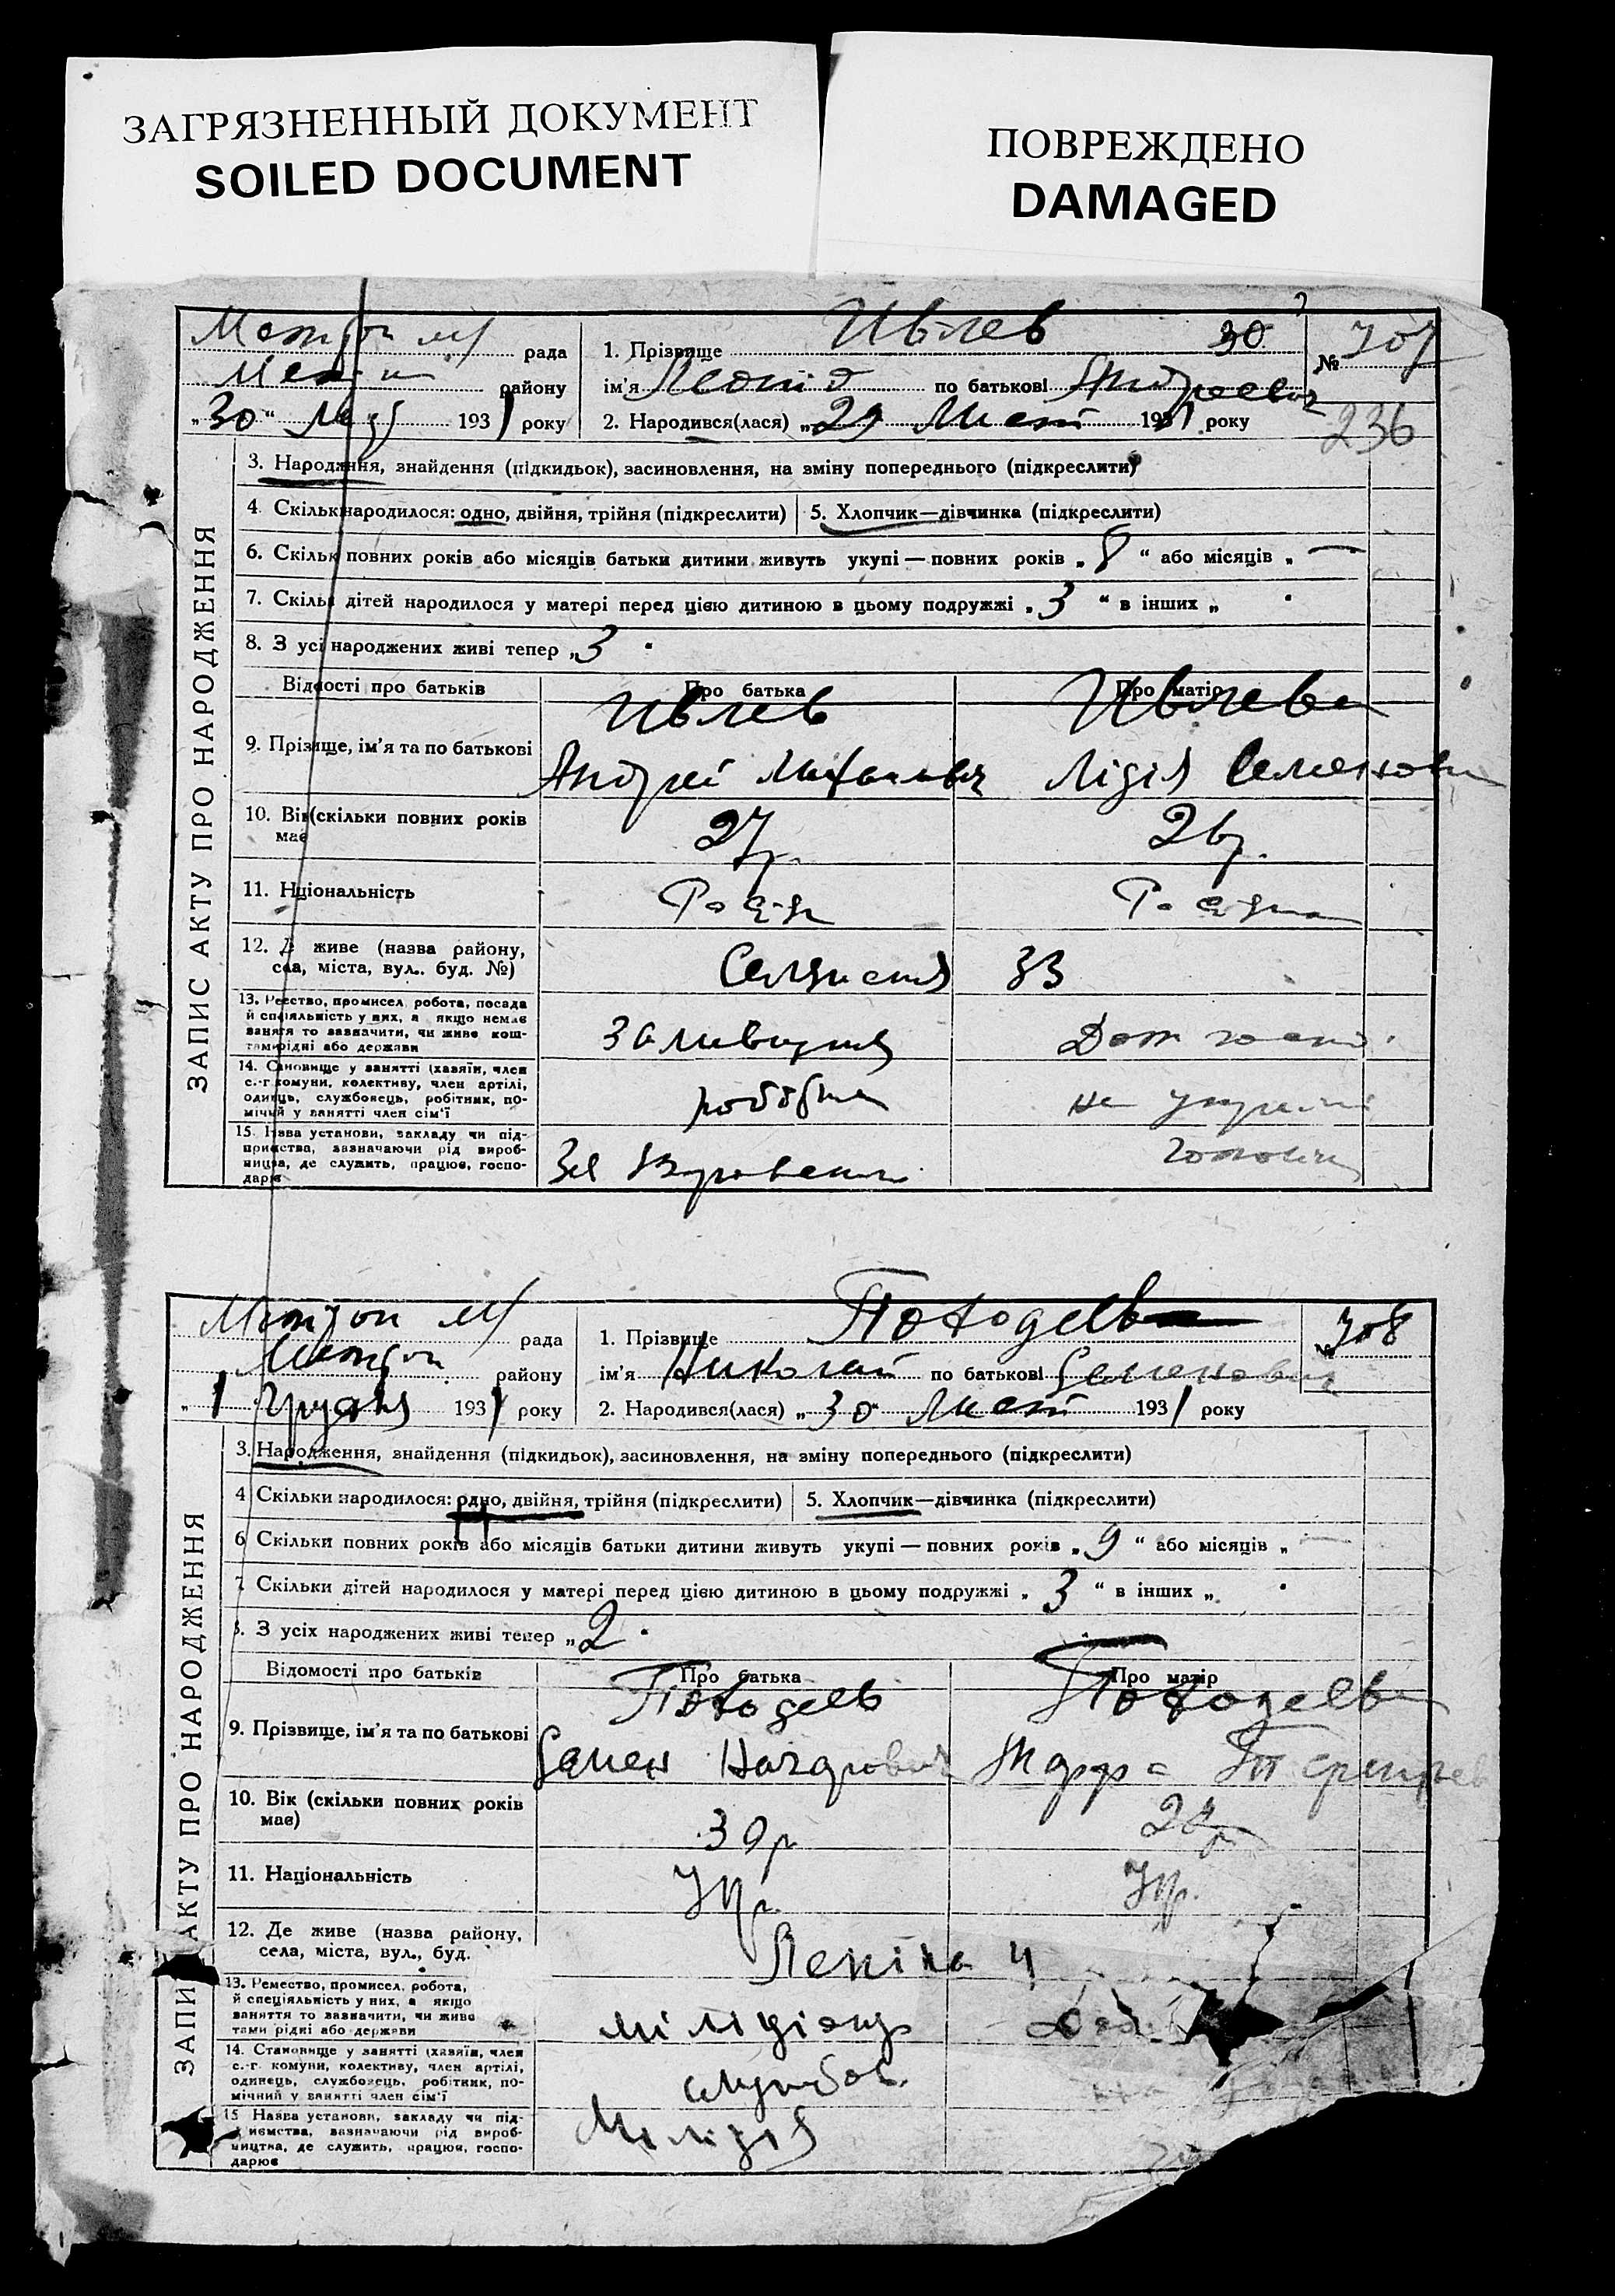 ЗАГРЯЗНЕННЫЙ ДОКУМЕНТ
SOILED DOCUMENT
ПОВРЕЖДЕНО
DAMAGED
рада
району
„30“ 1931 року
1. Прізвище Ивлев 30
ім'я Леонід по батькові Андреевич
2. Народився(лася) „29 Лист 1931 року
№ 707
236
ЗАПИС АКТУ ПРО НАРОДЖЕННЯ
3. Народження, знайдення (підкидьок), засиновлення, на зміну попереднього (підкреслити)
4. Скільк народилося: одно, двійня, трійня (підкреслити)
5. Хлопчик—дівчинка (підкреслити)
6. Скільк повних років або місяців батьки дитини живуть укупі — повних років „8“ або місяців „—
7. Скільк дітей народилося у матері перед цією дитиною в цьому подружжі „3“ в інших „
8. З усі народжених живі тепер „3
Відомості про батьків
Про батька
Про матір
9. Прізвище, ім'я та по батькові
Ивлев
Андрей
Ивлева
Лідія Семеновн
10. Вік (скільки повних років має
27р.
26р.
11. Національність
12. Де живе (назва району, села, міста, вул.. буд. №)
33
13. Ремество, промисел, робота, посада
й спеціяльність у них, а якщо немає
заняття то зазначити, чи живе кош-
тами рідні або держави
Дом госп.
14. Становище у занятті (хазяїн, член
с.-г. комуни, колективу, член артілі,
одинець, службовець, робітник, по-
мічний у занятті член сім'ї
15. Назва установи, закладу чи під-
приємства, зазначаючи рід вироб-
ництва, де служить, працює, госпо-
дарює
рада
району
„1 Грудня 1931 року
1. Прізвище
ім'я Николай по батькові Семенович
2. Народився(лася) „30“ Лист 1931 року
№ 708
ЗАПИ АКТУ ПРО НАРОДЖЕННЯ
3. Народження, знайдення (підкидьок), засиновлення, на зміну попереднього (підкреслити)
4 Скільки народилося: одно, двійня, трійня (підкреслити)
5. Хлопчик—дівчинка (підкреслити)
6 Скільки повних років або місяців батьки дитини живуть укупі — повних років „9“ або місяців „—
7. Скільки дітей народилося у матері перед цією дитиною в цьому подружжі „3“ в інших „
8. З усіх народжених живі тепер „2
Відомості про батьків
Про батька
Про матір
9. Прізвище, ім'я та по батькові
Семен
10. Вік (скільки повних років має)
30р
11. Національність
Укр.
Укр.
12. Де живе (назва району, села, міста, вул., буд.
Леніна 4
13. Ремество, промисел, робота,
й спеціяльність у них, а якщо
заняття то зазначити, чи живе
тами рідні або держави
міліціонер
14. Становище у занятті (хазяїн, член
с.-г. комуни, колективу, член артілі,
одинець, службовець, робітник, по-
мічний у занятті член сім'ї
службов.
15 Назва установи, закладу чи під-
иємства, зазначаючи рід вироб-
ництва, де служить, працює, госпо-
дарює
Міліція